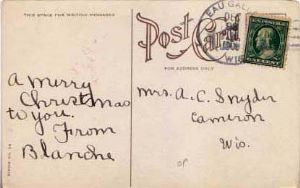 THIS SPACE FOR WRITING MESSAGES
Post Card
FOR ADDRESS ONLY
EAU
DEC
WIS
A Merry
Christmas
to you.
From
Blanche
Mrs. A. C. Snyder
Cameron
Wis.